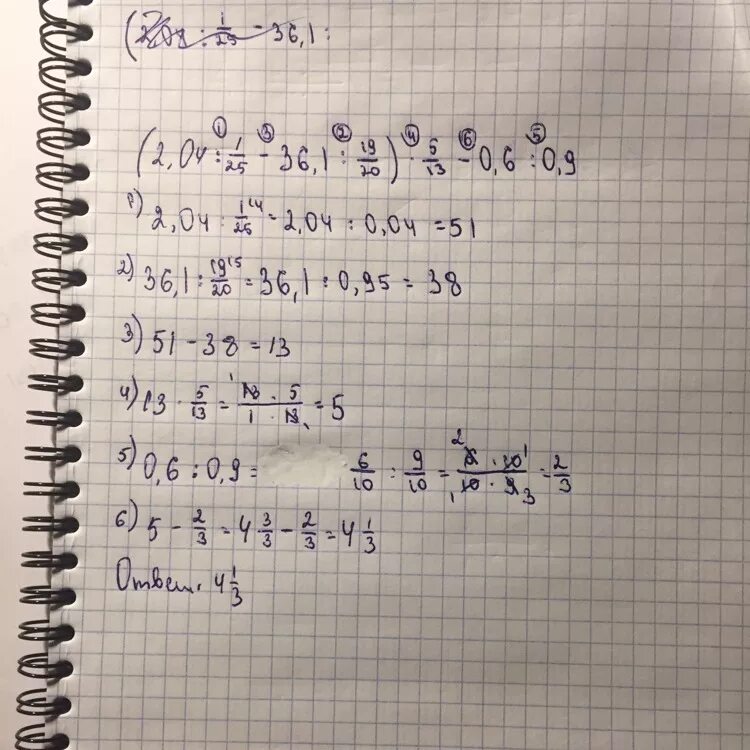 (2,04 : 1/25 - 36,1 :
(2,04 : 1/25 - 36,1 : 19/20) · 5/13 - 0,6 : 0,9
① ③ ② ④ ⑥ ⑤
1) 2,04 : 1/25 = 2,04 : 0,04 = 51
2) 36,1 : 19/20 = 36,1 : 0,95 = 38
3) 51 - 38 = 13
4) 13 · 5/13 = 13 · 5 / 1 · 13 = 5
5) 0,6 : 0,9 = 6/10 : 9/10 = 6 · 10 / 10 · 9 = 2/3
6) 5 - 2/3 = 4 3/3 - 2/3 = 4 1/3
Ответ: 4 1/3